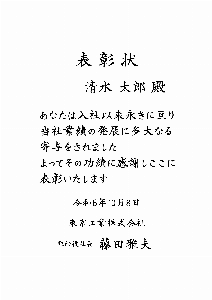 表彰状
清水 太郎 殿
あなたは入社以来永きに亘り
当社業績の発展に多大なる
寄与をされました
よってその功績に感謝しここに
表彰いたします
令和6年10月8日
東京工業株式会社
藤田雅夫